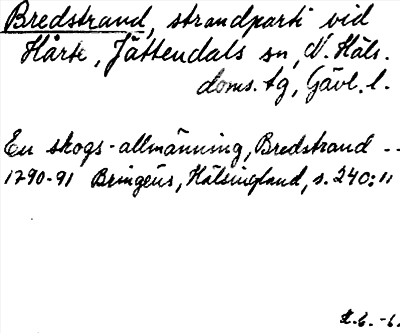 Bredstrand, strandparti vid
Hårte, Jättendals sn, N. Häls.
doms. tg, Gävl. l.
En skogs-allmänning, Bredstrand --
1790-91 Bringéus, Hälsingland, s. 240:11